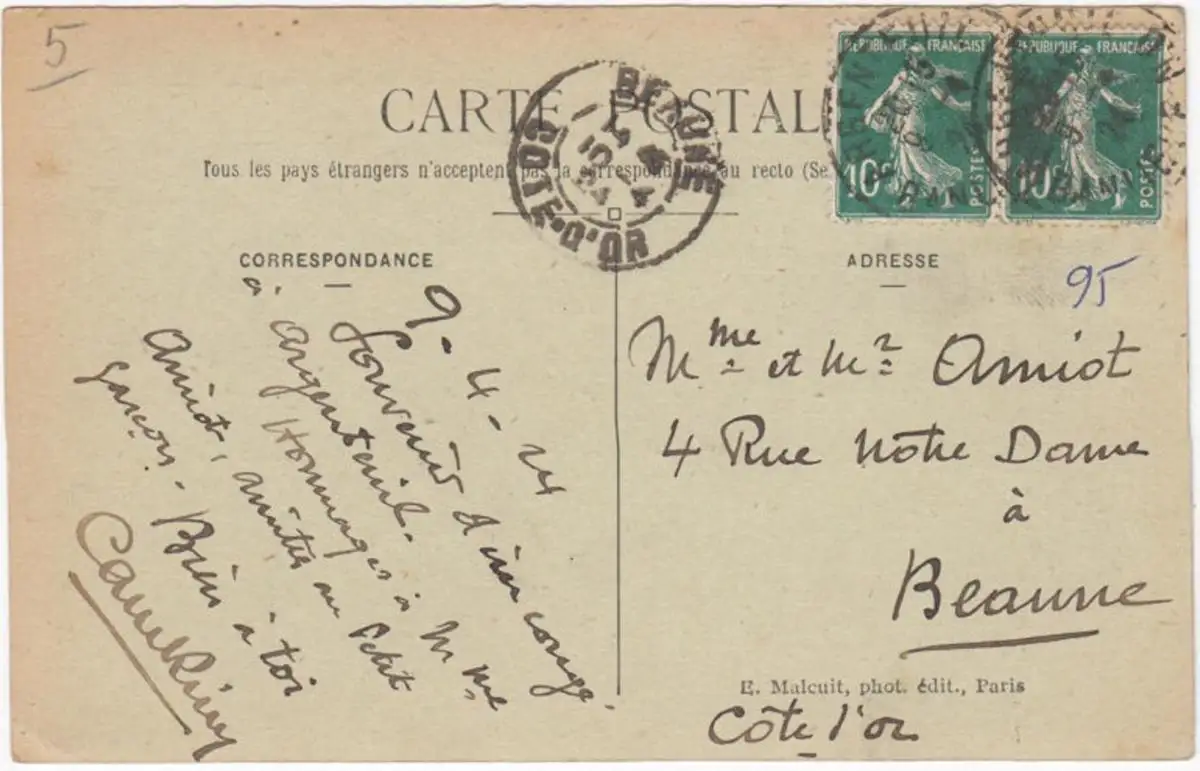 5
CARTE POSTALE
Tous les pays étrangers n'acceptent pas la correspondance au recto (Se
BEAUNE
COTE-D'OR
REPUBLIQUE FRANÇAISE
10c
POSTES
REPUBLIQUE FRANÇAISE
10c
POSTES
CORRESPONDANCE
9-4-24
Souvenir d'un congé
à Argenteuil.
Hommages à Mme
Amiot, amitiés au petit
garçon. Bien à toi
ADRESSE
95
Mme et Mr Amiot
4 Rue Notre Dame
à
Beaune
E. Malcuit, phot. édit., Paris
Côte d'or